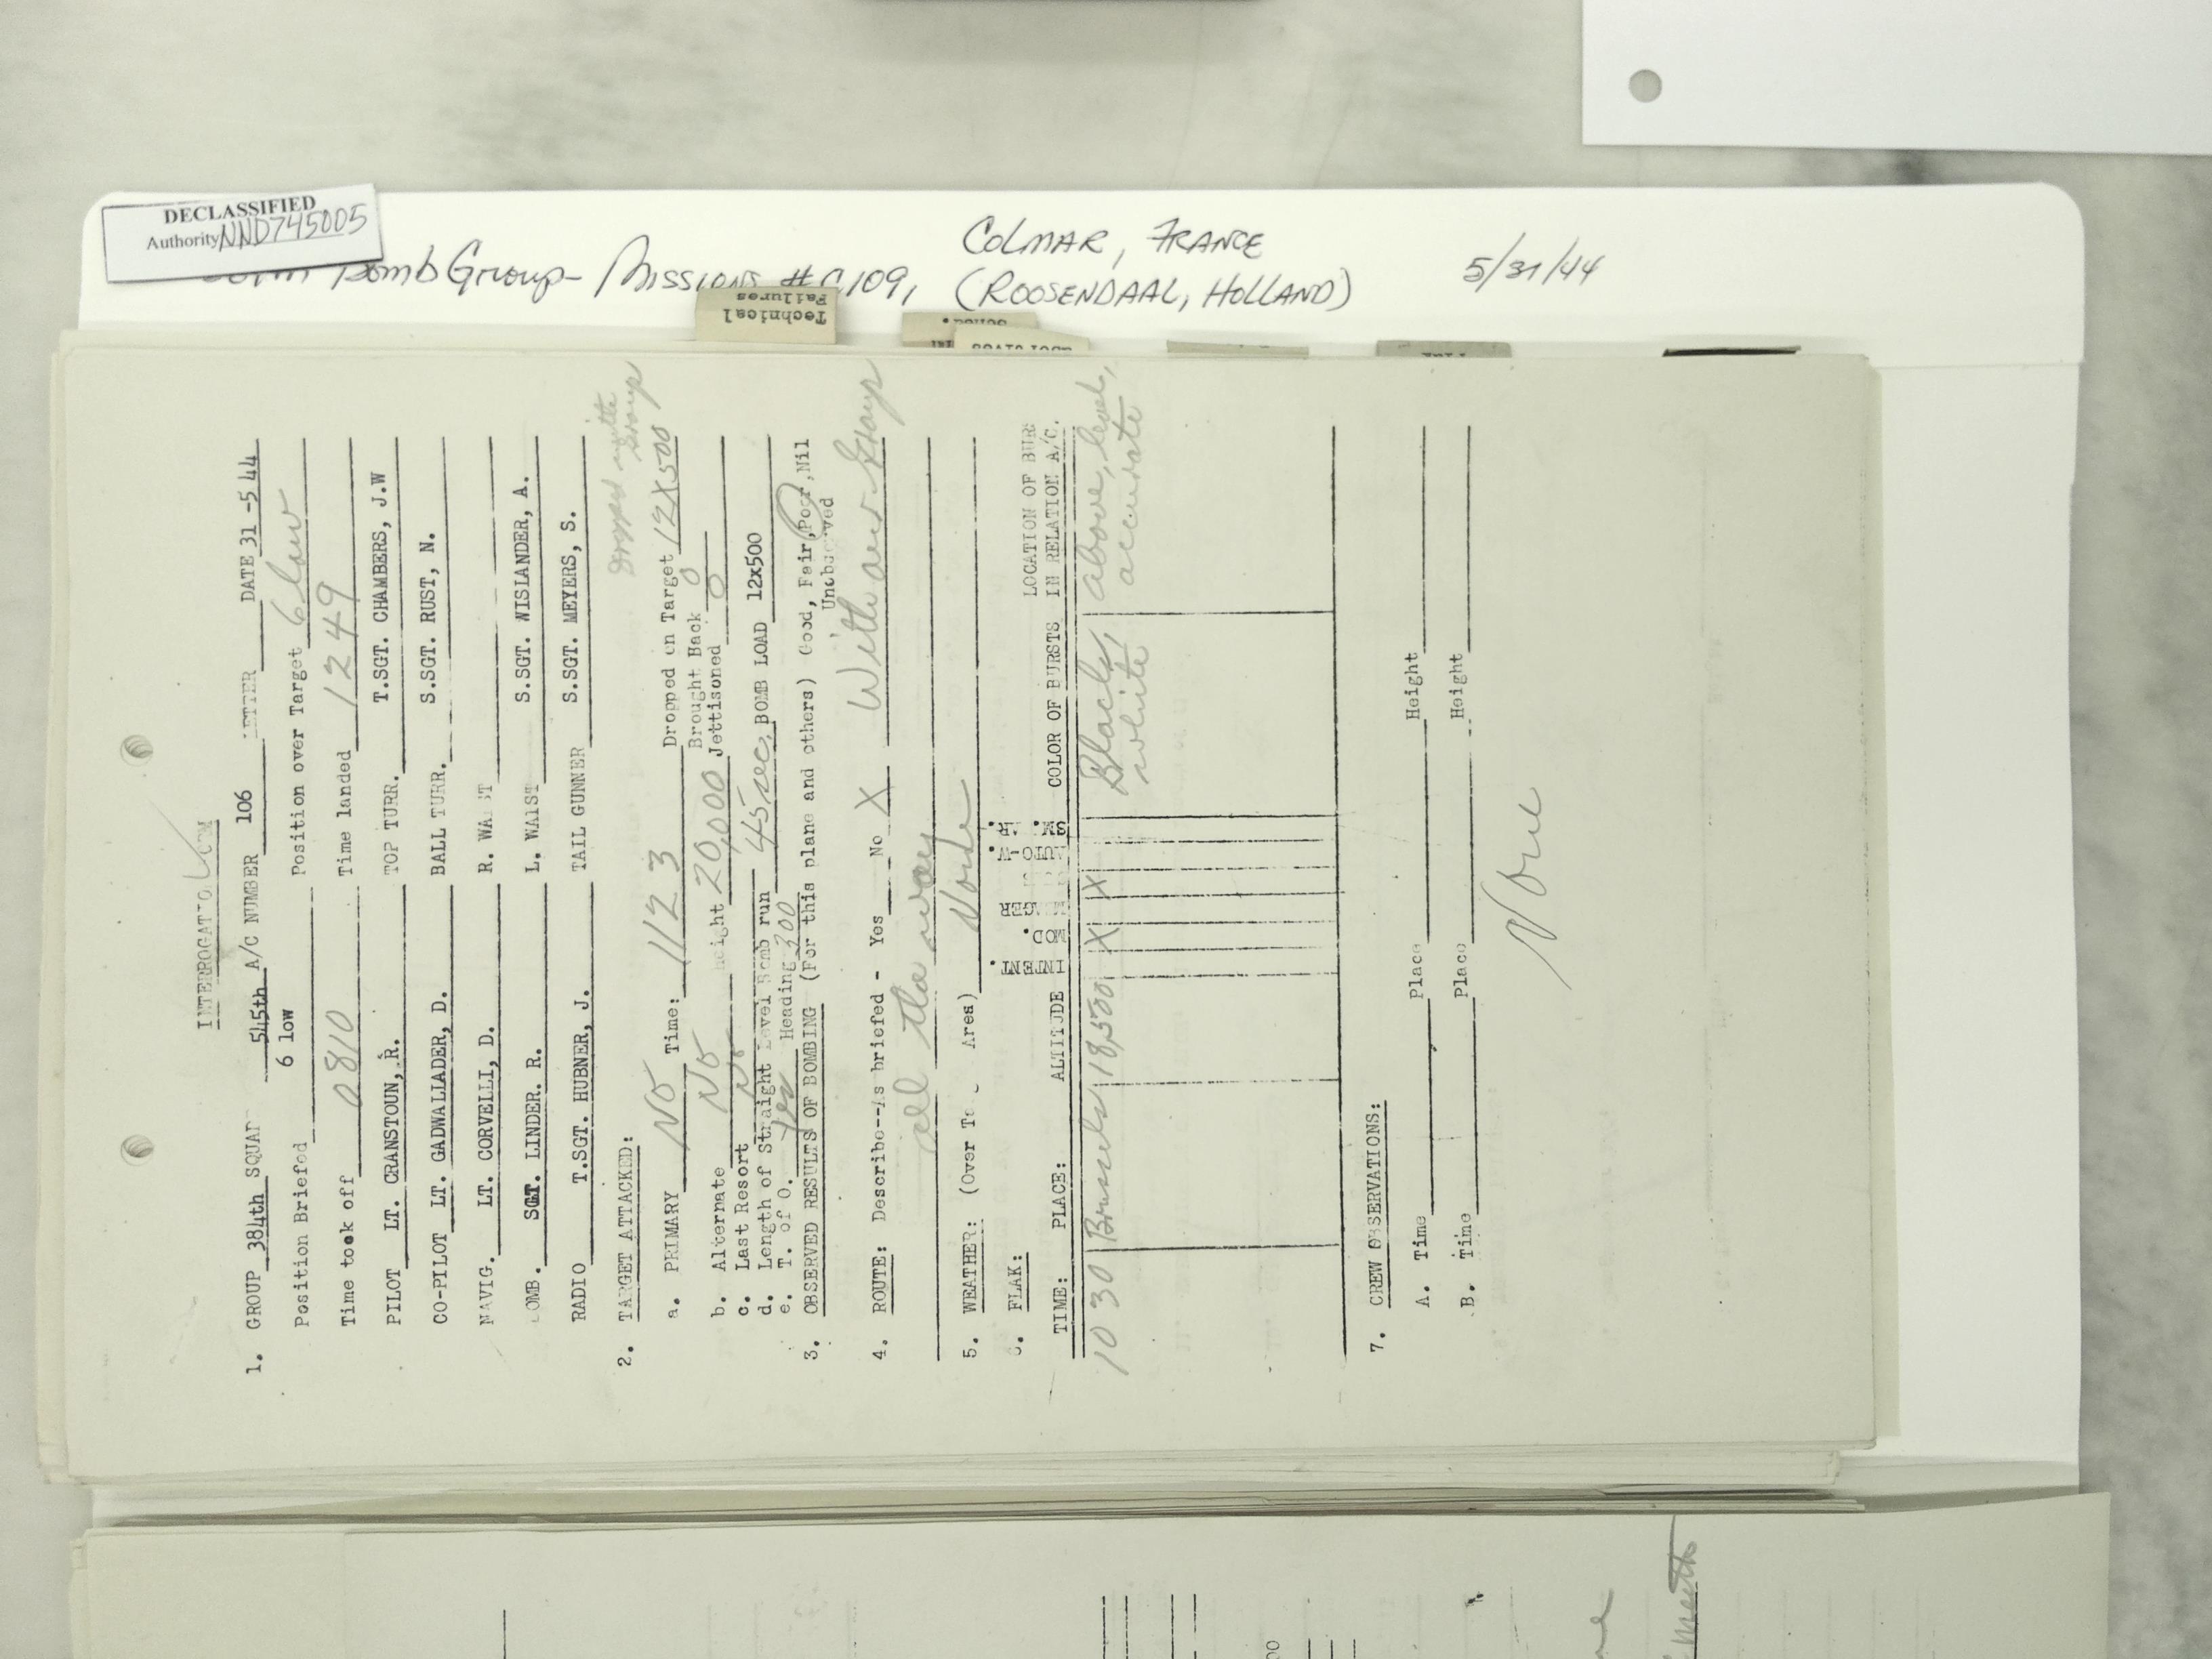 DECLASSIFIED
Authority NND745005
Bomb Group - Missions #
109,
COLMAR, FRANCE
(ROOSENDAAL, HOLLAND)
5/31/44
Technical
Failures
INTERROGATION FORM
1. GROUP 384th SQUAD 545th A/C NUMBER 106 LETTER DATE 31-5 44
Position Briefed 6 low Position over Target 6 low
Time took off 0810 Time landed 1249
PILOT LT. CRANSTOUN, R. TOP TURR. T.SGT. CHAMBERS, J.W
CO-PILOT LT. GADWALLADER, D. BALL TURR. S.SGT. RUST, N.
NAVIG. LT. CORVELLI, D. R. WAIST
BOMB. SGT. LINDER. R. L. WAIST S.SGT. WISLANDER, A.
RADIO T.SGT. HUBNER, J. TAIL GUNNER S.SGT. MEYERS, S.
2. TARGET ATTACKED: Dropped with Group
a. PRIMARY No Time: 1123 Dropped on Target 12X500
Brought Back 0
b. Alternate No Height 20,000 Jettisoned 0
c. Last Resort No
d. Length of Straight Level Bomb run 45 sec. BOMB LOAD 12x500
e. T. of O. Yes Heading 300
3. OBSERVED RESULTS OF BOMBING (For this plane and others) Good, Fair, Poor, Nil
Unobserved
4. ROUTE: Describe--As briefed - Yes No X With our Group
all the way
5. WEATHER: (Over Area)
6. FLAK:
LOCATION OF BUR
TIME: PLACE: ALTITUDE INTENT. MOD. MEAGER AUTO-W. SM. AR. COLOR OF BURSTS IN RELATION A/C.
1030 Brussels 18,500 X X Black, white above, level, accurate
7. CREW OBSERVATIONS:
A. Time Place Height
B. Time Place Height
None